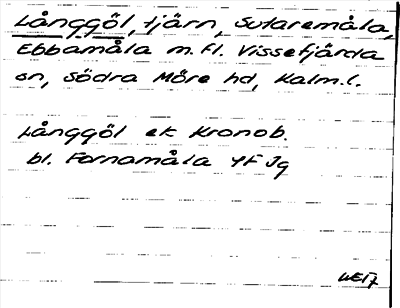 Långgöl, tjärn, Sutaremåla,
Ebbamåla m.fl. Vissefjärda
sn, Södra Möre hd, Kalm.l.
Långgöl ek Kronob.
bl. Fornamåla 4F Jg